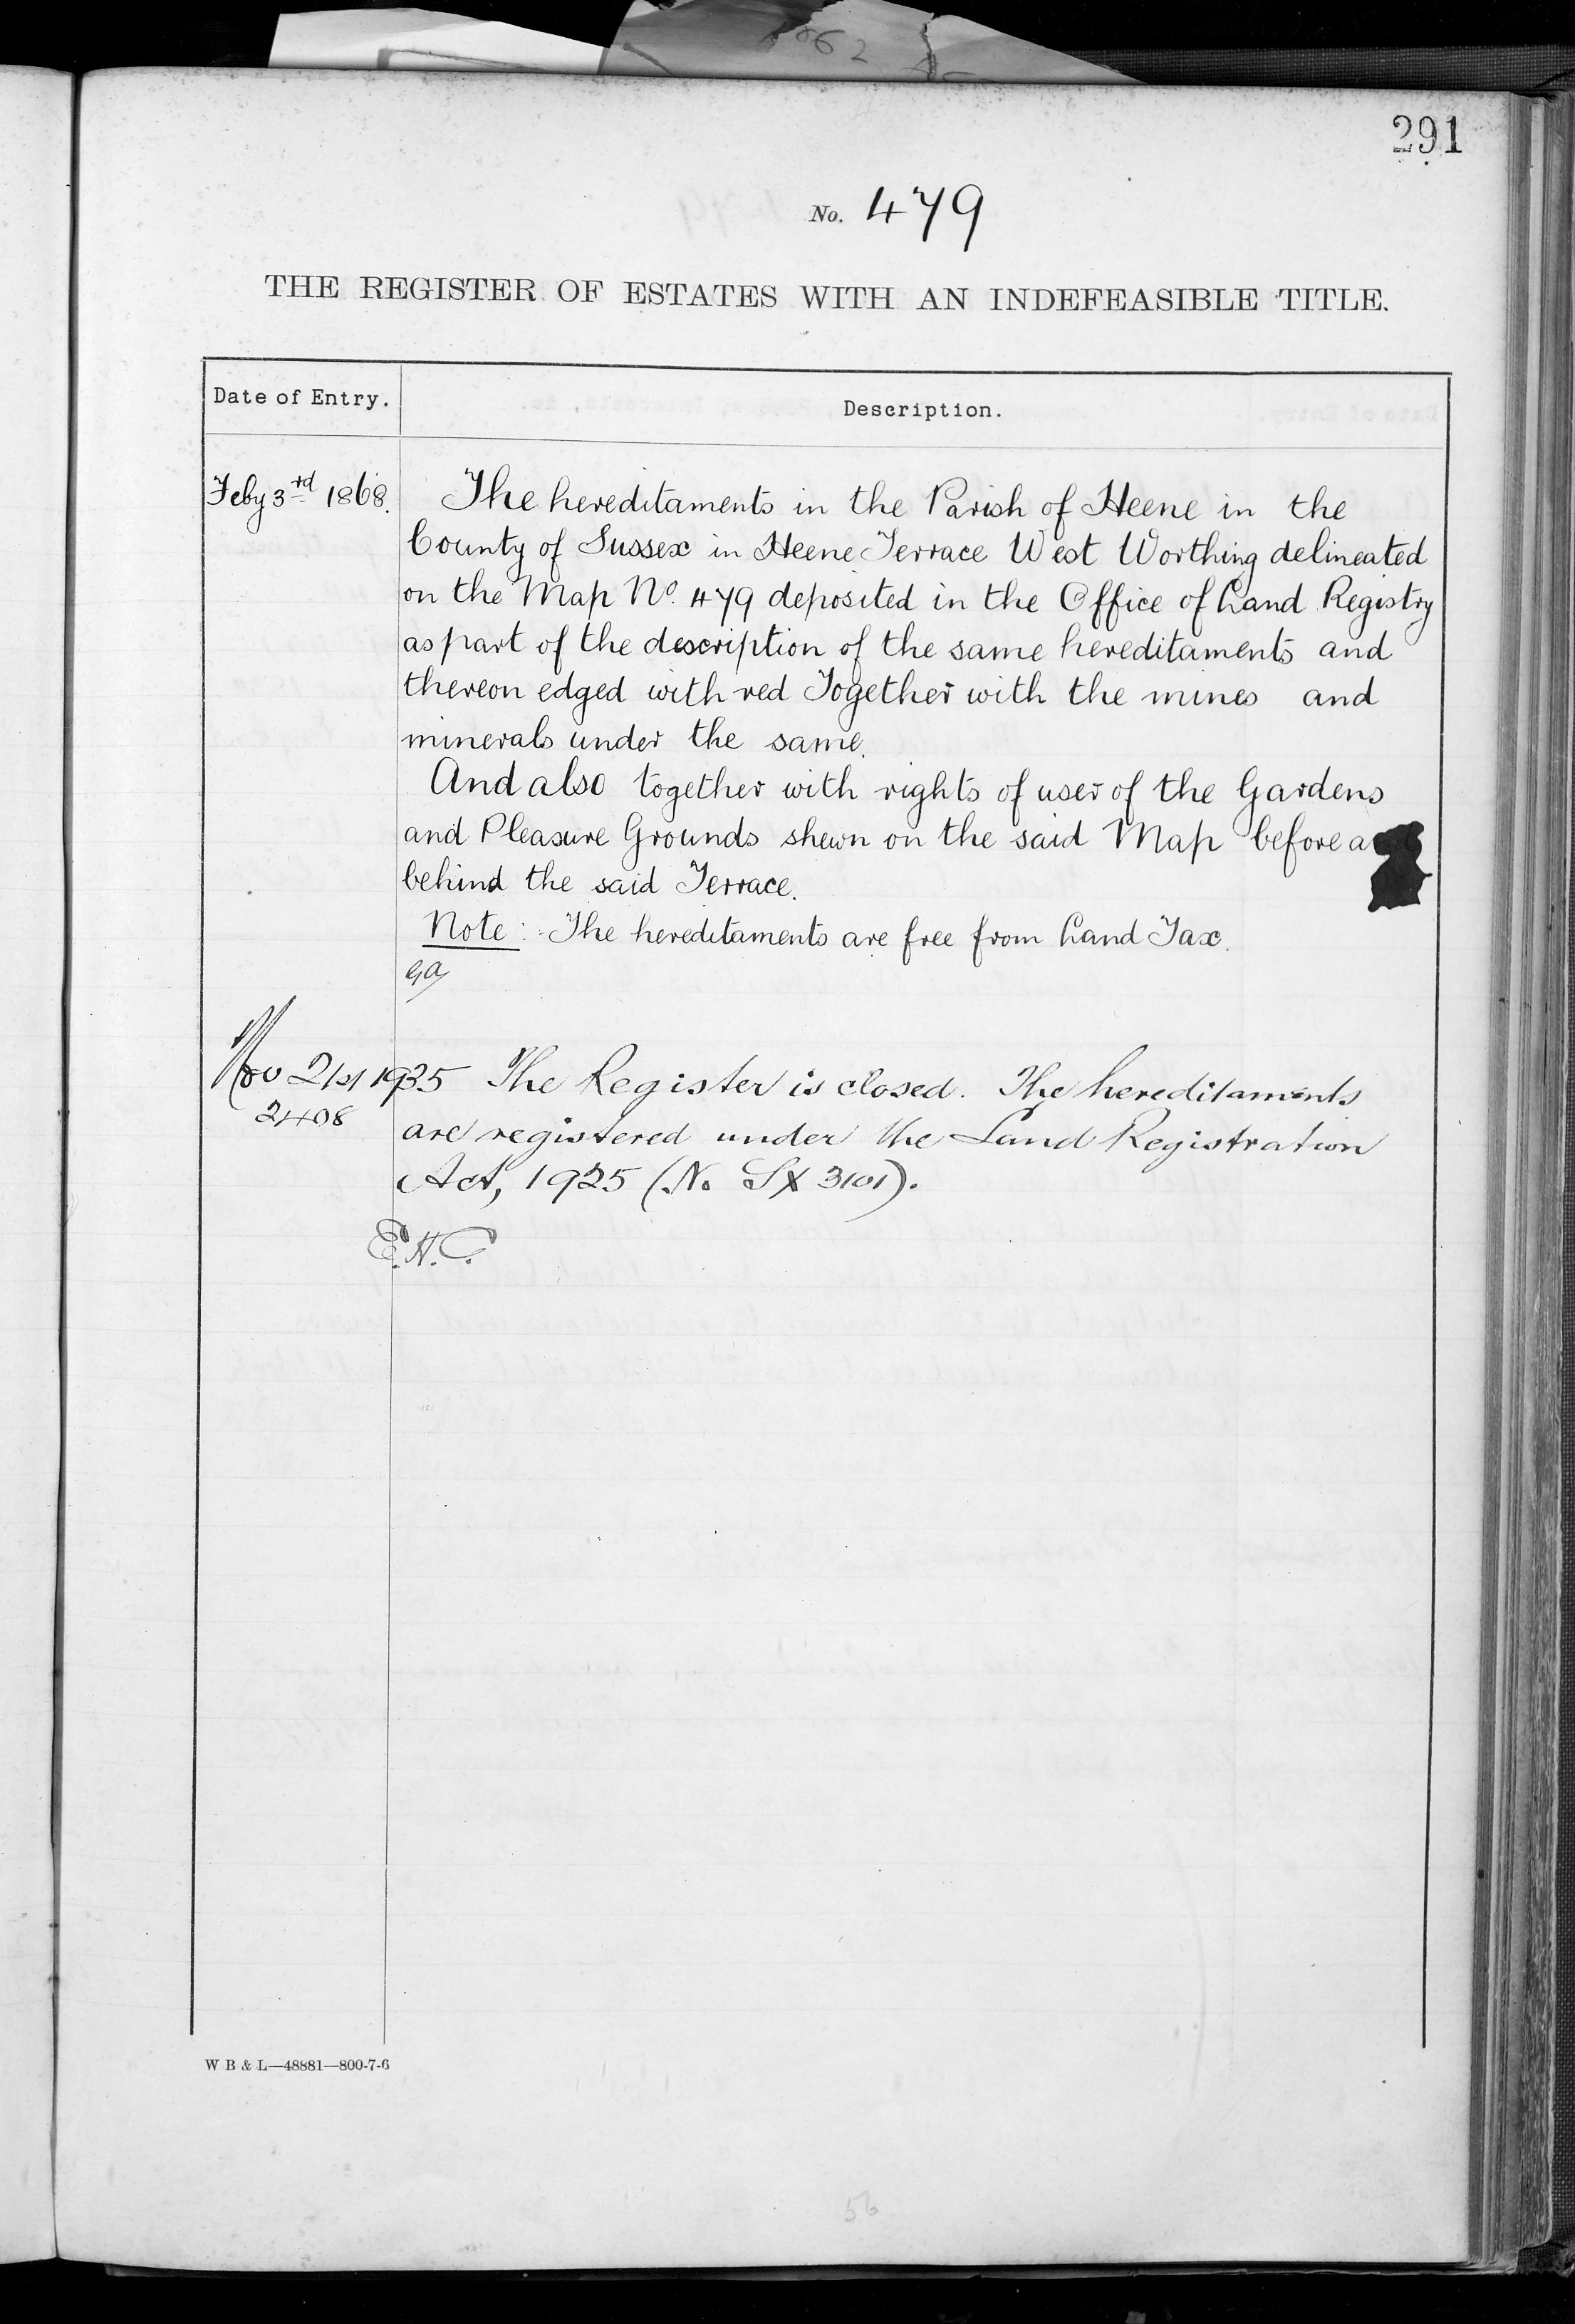 291
No. 479
THE REGISTER OF ESTATES WITH AN INDEFEASIBLE TITLE.
Date of Entry. Description.
Feby 3rd 1868. The hereditaments in the Parish of Heene in the
County of Sussex in Heene Terrace West Worthing delineated
on the Map No. 479 deposited in the Office of Land Registry
as part of the description of the same hereditaments and
thereon edged with red Together with the mines and
minerals under the same.
And also together with rights of user of the Gardens
and Pleasure Grounds shewn on the said Map before
behind the said Terrace.
Note: - The hereditaments are free from Land Tax.
Nov 21st 1935 The Register is closed. The hereditaments
2408 are registered under the Land Registration
Act, 1925 (No SX 3101).
E.H.C.
W B & L—48881—800-7-6
56